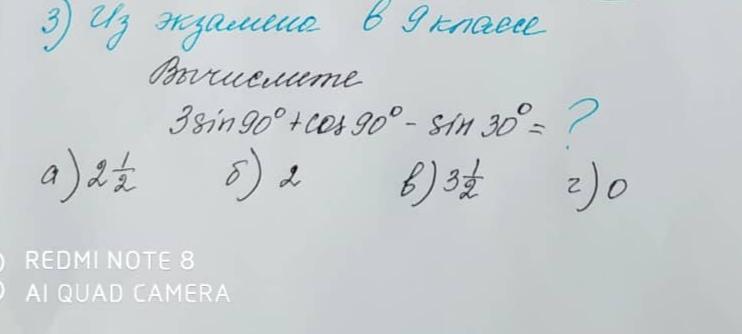 3) Из экзамена в 9 классе
Вычислите
3sin90°+cos90°- sin 30°= ?
а) 2 1/2 б) 2 в) 3 1/2 г) 0
REDMI NOTE 8
AI QUAD CAMERA